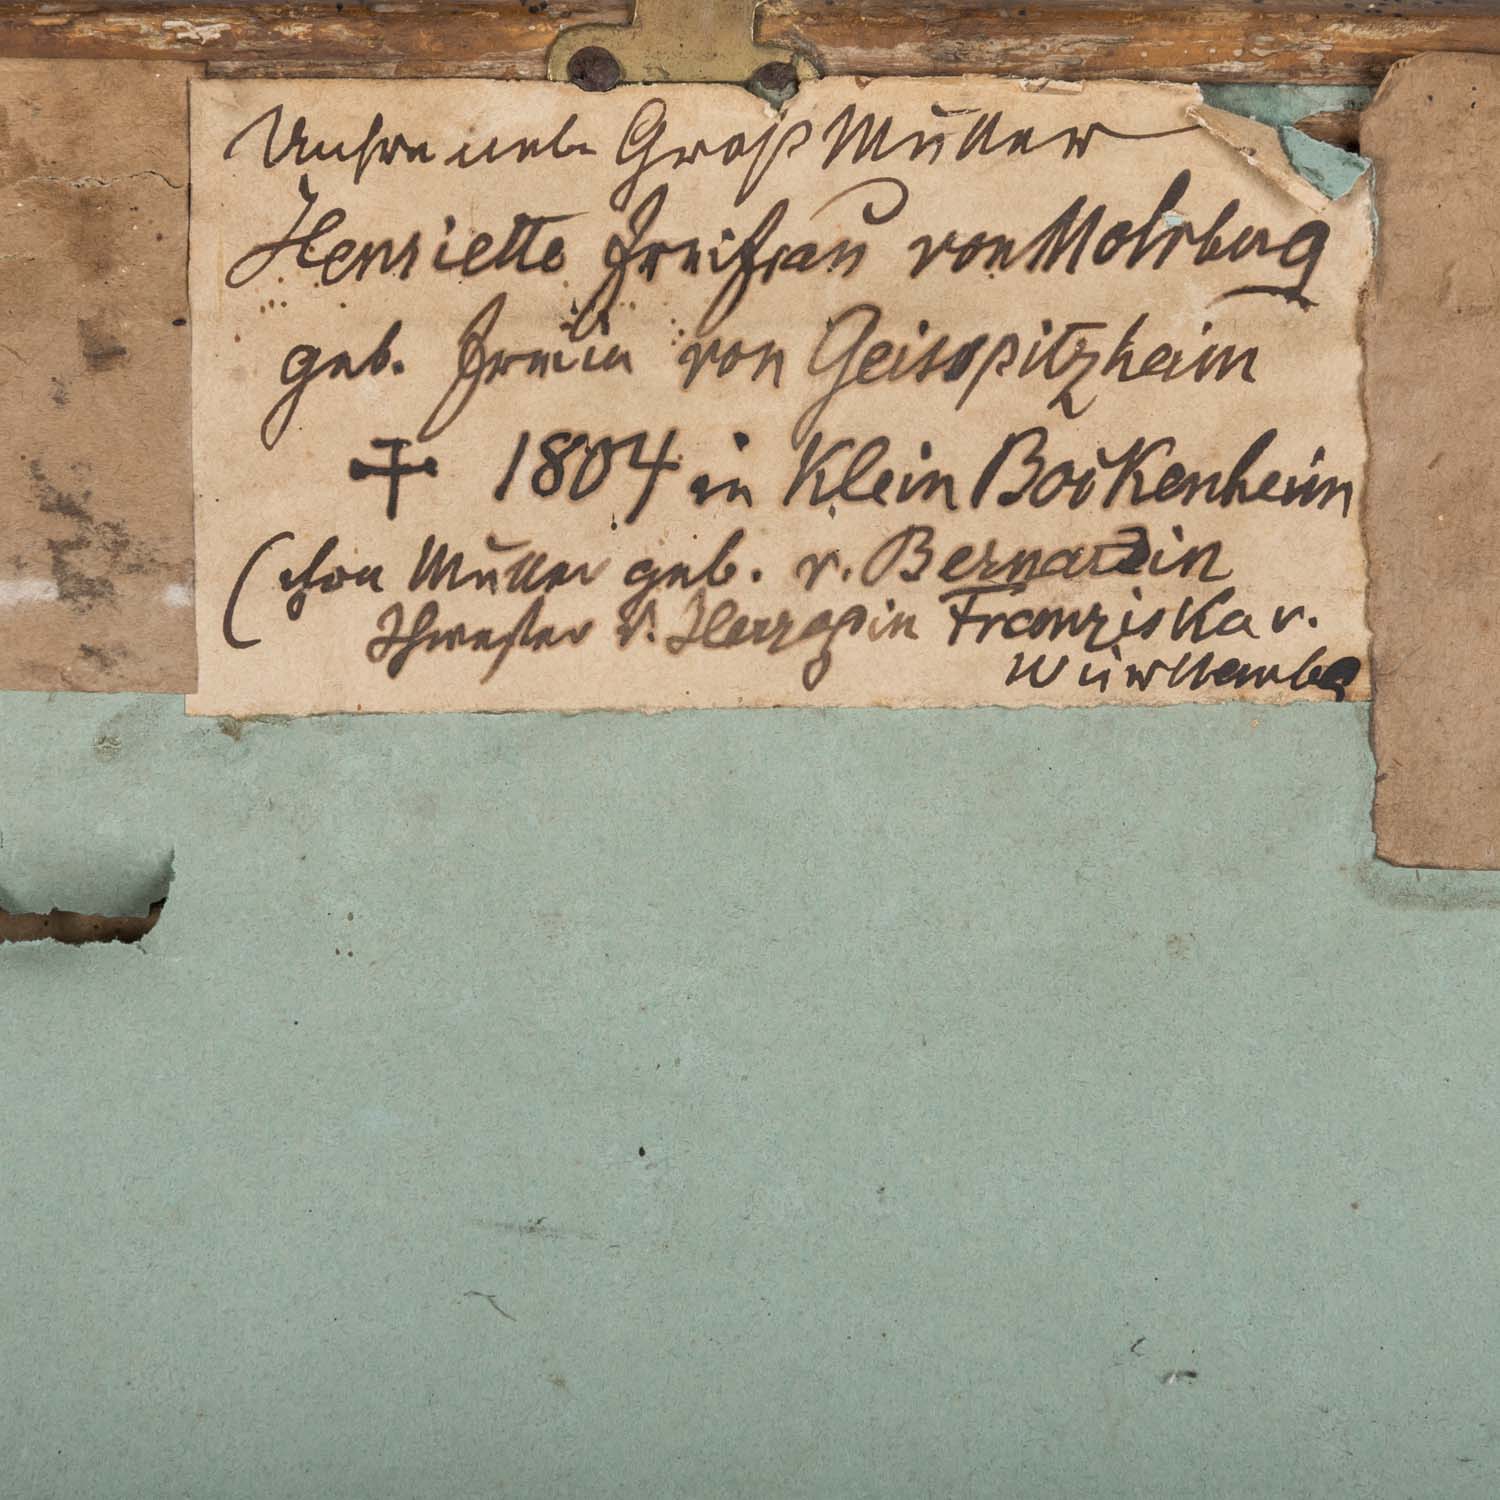 Unsre Groß Mutter
Henriette Freifrau von Mohrberg
geb. Freiin von Geisspitzheim
† 1804 in Klein Bockenheim
(Mutter geb. v. Bernardin
Schwester d. Herzogin Franziska v.
Württembg